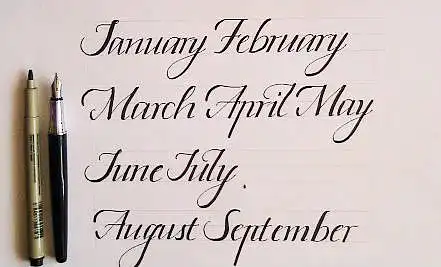 January February
March April May
June July.
August September